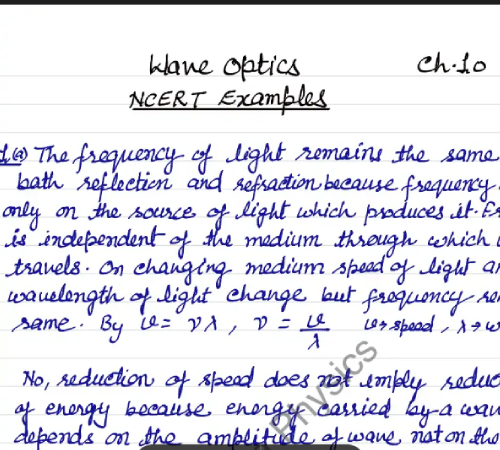 Wave Optics Ch.10
NCERT Examples
1.(a) The frequency of light remains the same
bath reflection and refraction because frequency
only on the source of light which produces it. Fr
is independent of the medium through which
travels. On changing medium speed of light an
wavelength of light change but frequency re
same. By v = νλ, ν = v/λ v→speed, λ→w
No, reduction of speed does not imply reduc
of energy because energy carried by a wav
depends on the amplitude of wave not on the
Physics